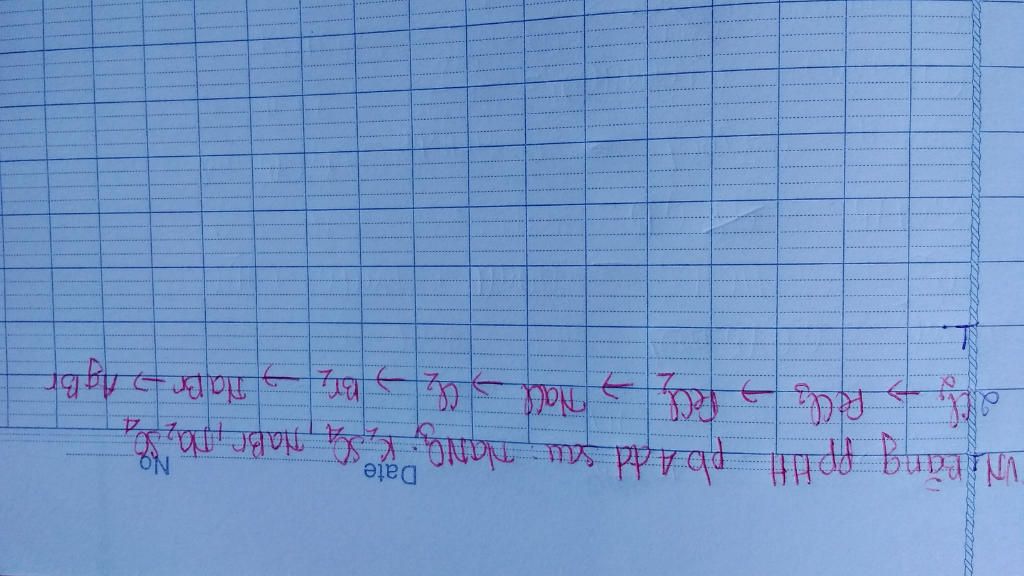 No
Date
VN Bằng pp HH pb 4 dd sau: NaNO3, K2SO4, NaBr, Na2SO4
2 Cl2 → FeCl3 → FeCl2 → NaCl → Cl2 → Br2 → NaBr → AgBr